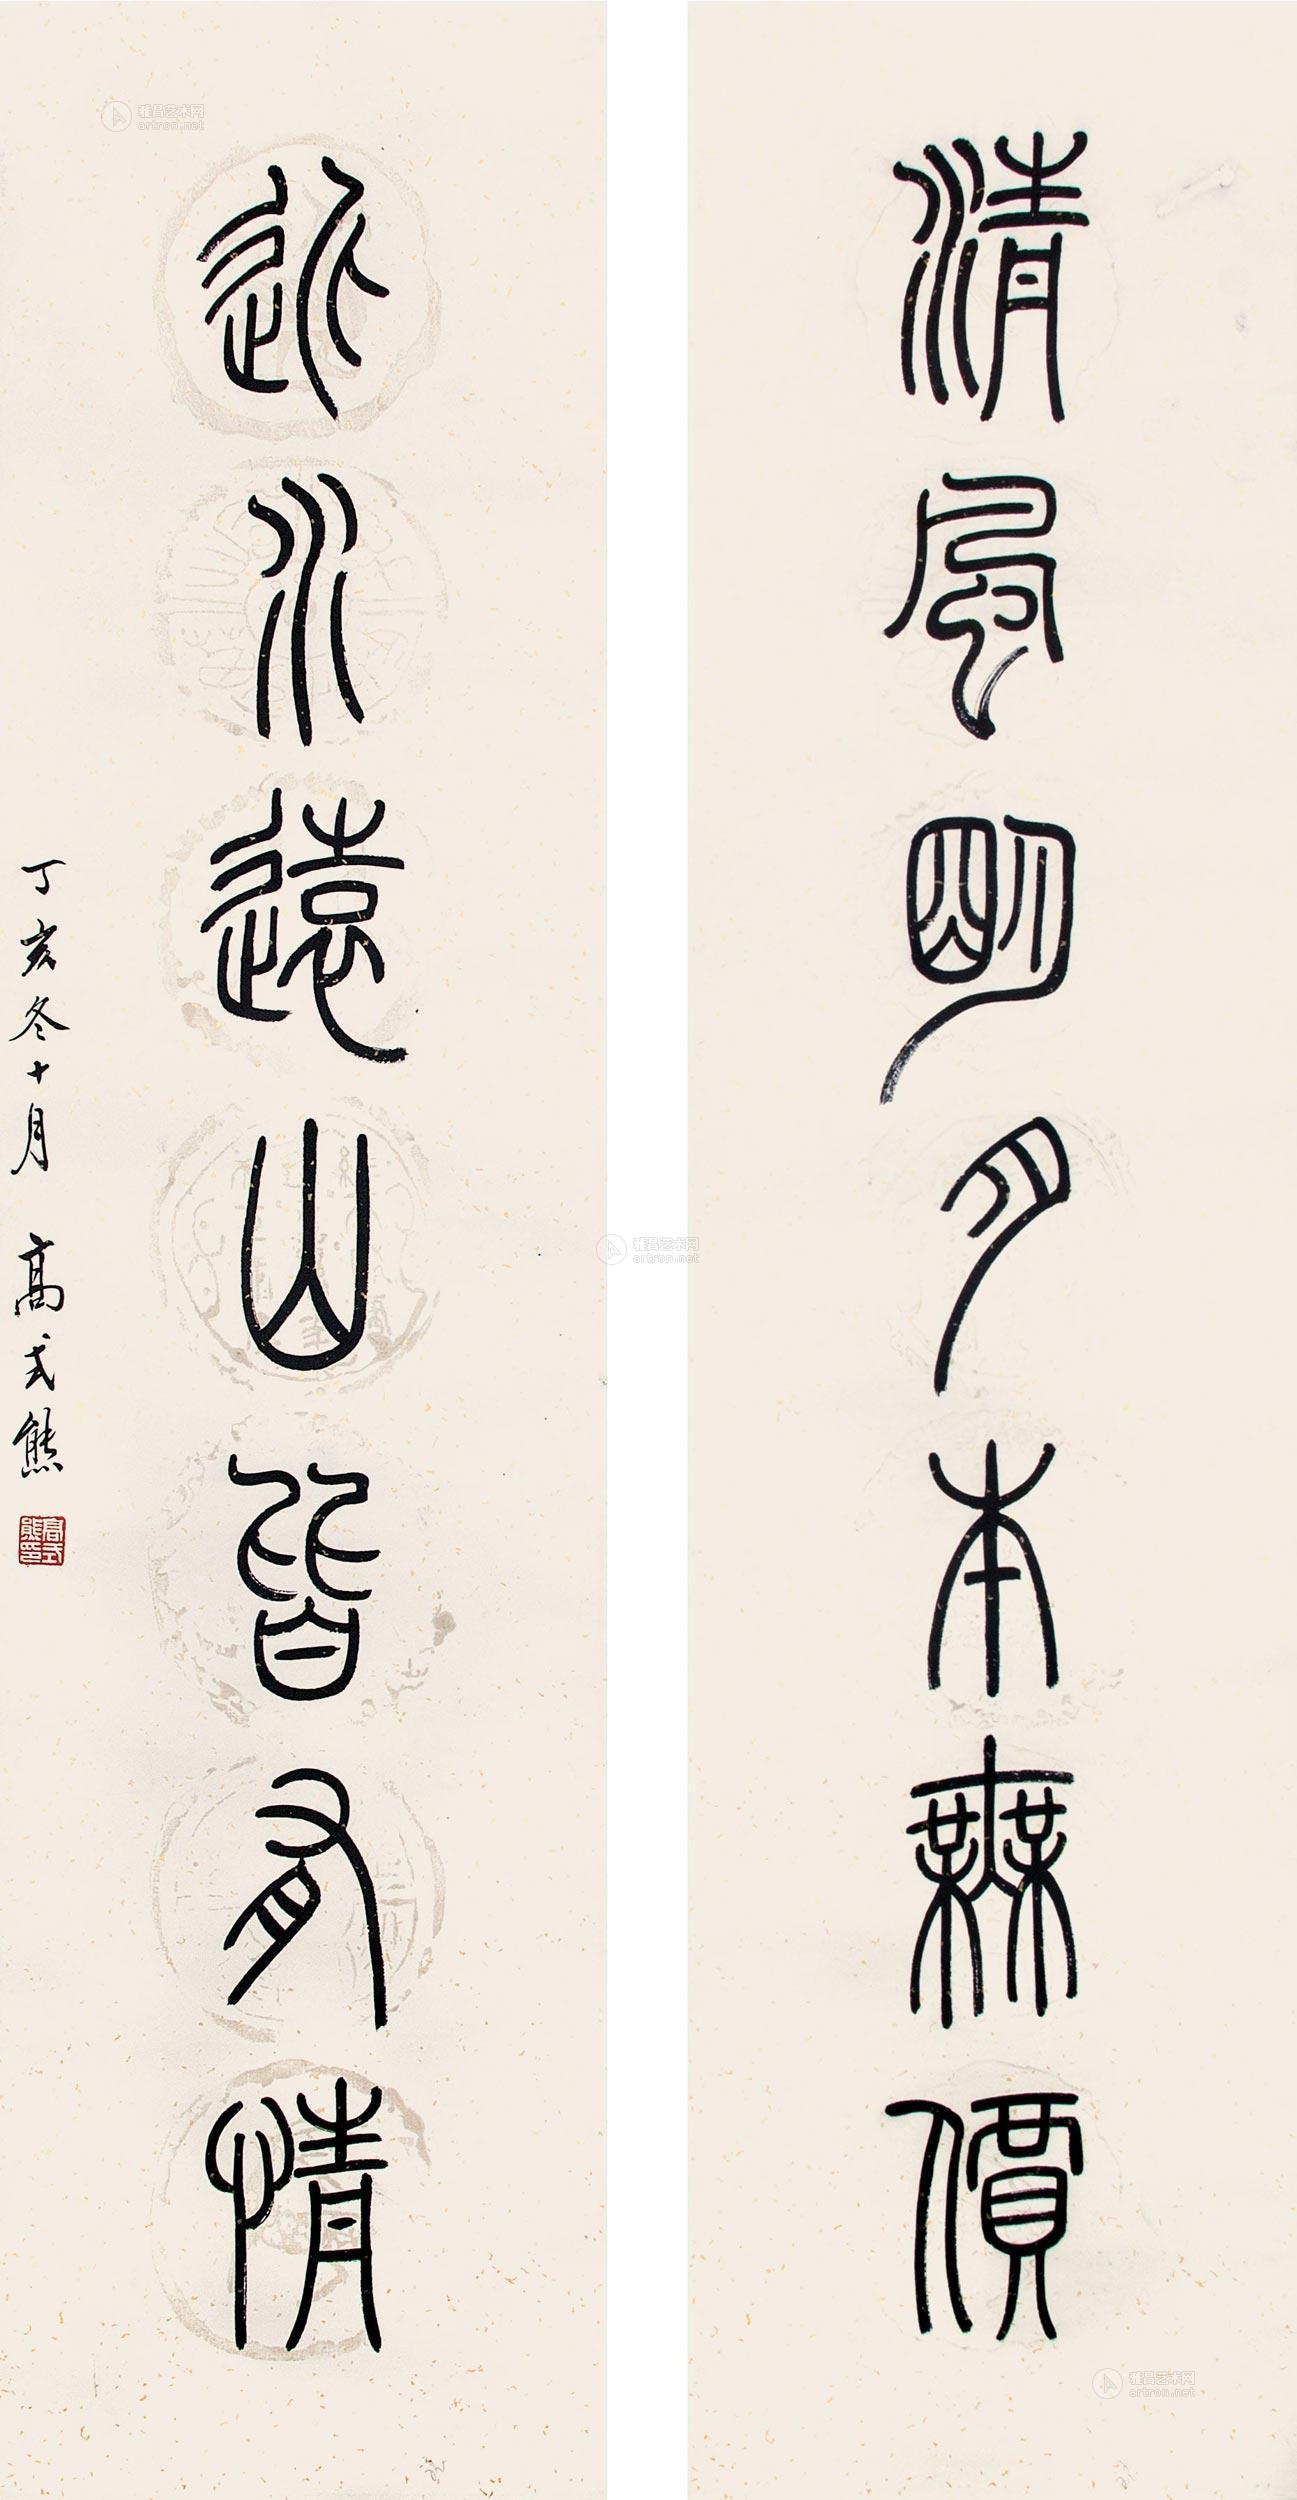 清風朙月本無價
近水遠山皆有情
丁亥冬十月 高式熊
高式熊印
雅昌艺术网
artron.net
雅昌艺术网
artron.net
雅昌艺术网
artron.net